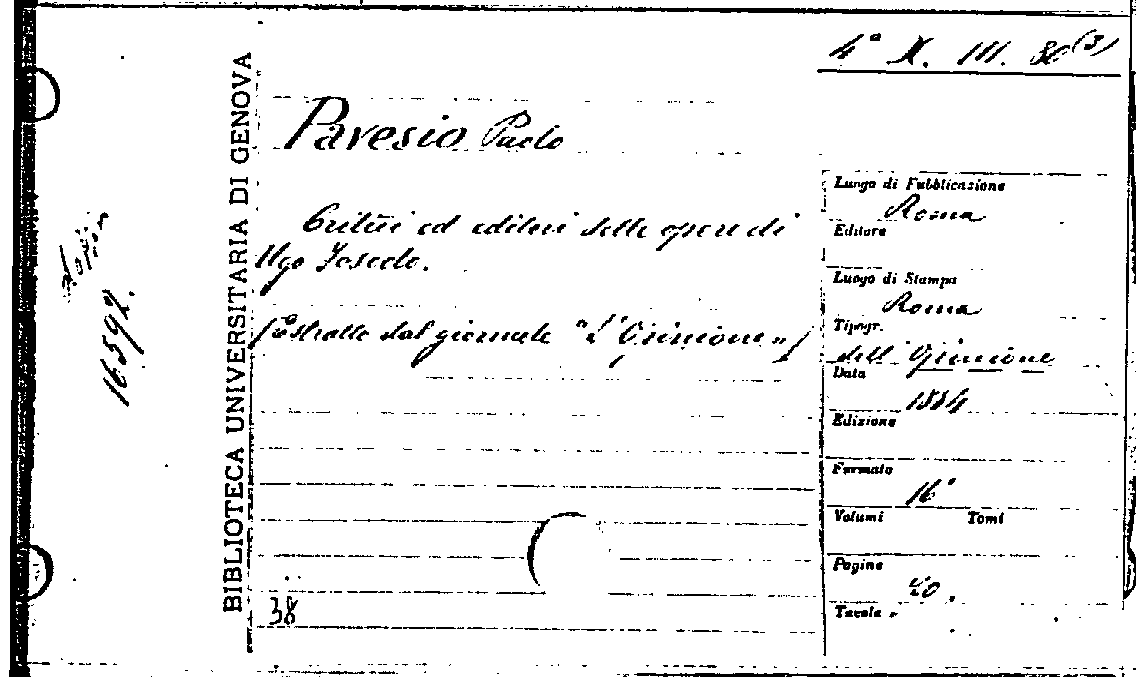 4ª X. III. 80(3)
BIBLIOTECA UNIVERSITARIA DI GENOVA
16592.
Pavesio Paolo
Critici ed editori delle opere di
Ugo Foscolo.
(Estratto dal giornale "L'Opinione„)
38
Luogo di Pubblicazione
Roma
Editore
Luogo di Stampa
Roma
Tipogr.
dell'Opinione
Data
1884
Edizione
Formato
16°
Volumi Tomi
Pagine
20.
Tavole